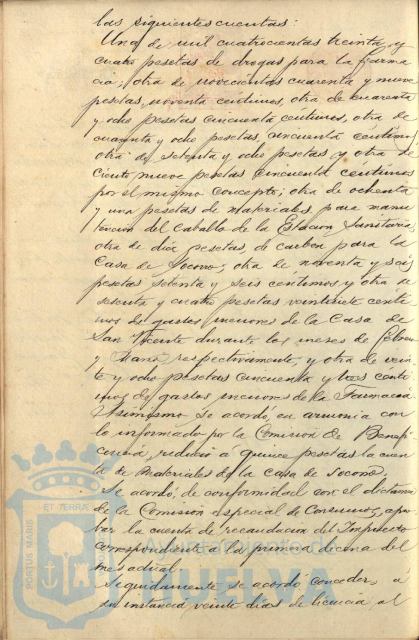 las siguientes cuentas:
Una de mil cuatrocientas treinta y
cuatro pesetas de drogas para la farma
cia; otra de novecientas cuarenta y nueve
pesetas, noventa céntimos, otra de cuarenta
y ocho pesetas cincuenta céntimos, otra de
cuarenta y ocho pesetas, cincuenta céntimos
otra de setenta y ocho pesetas y otra de
ciento nueve pesetas cincuenta céntimos
por el mismo concepto; otra de ochenta
y una pesetas de materiales para manu
tencion del Caballo de la Estacion Sanitaria,
otra de diez pesetas, de carbon para la
Casa de Socorro; otra de noventa y seis
pesetas setenta y seis centimos y otra de
setenta y cuatro pesetas veintisiete centi
mos de gastos menores de la Casa de
San Vicente durante los meses de Febrero
y Marzo respectivamente, y otra de vein
te y ocho pesetas cincuenta y tres centi
mos de gastos menores de la Farmacia
Asimismo se acordó, en armonia con
lo informado por la Comisión de Benefi
cencia, reducir a quince pesetas la cuen
ta de materiales de la casa de socorro.
Se acordó, de conformidad con el dictamen
de la Comision especial de Consumos, apro
bar la cuenta de recaudacion del Impuesto
correspondiente a la primera decena del
mes actual.
Seguidamente se acordó conceder, á
su instancia veinte dias de licencia, al
PORTUS MARIS ET TERRÆ
Ayuntamiento de
HUELVA